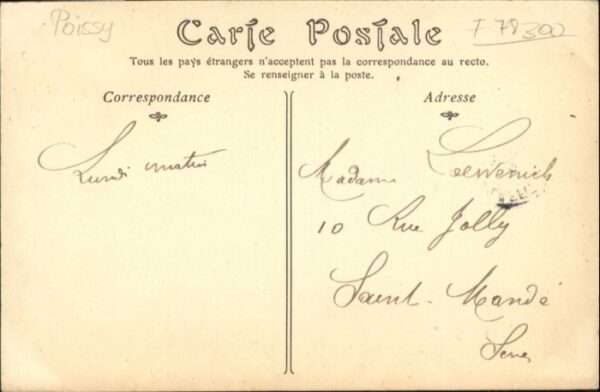 Poissy
F 78300
Carte Postale
Tous les pays étrangers n'acceptent pas la correspondance au recto.
Se renseigner à la poste.
Correspondance
Lundi matin
Adresse
Madame
10 Rue Jolly
Saint-Mandé
Seine